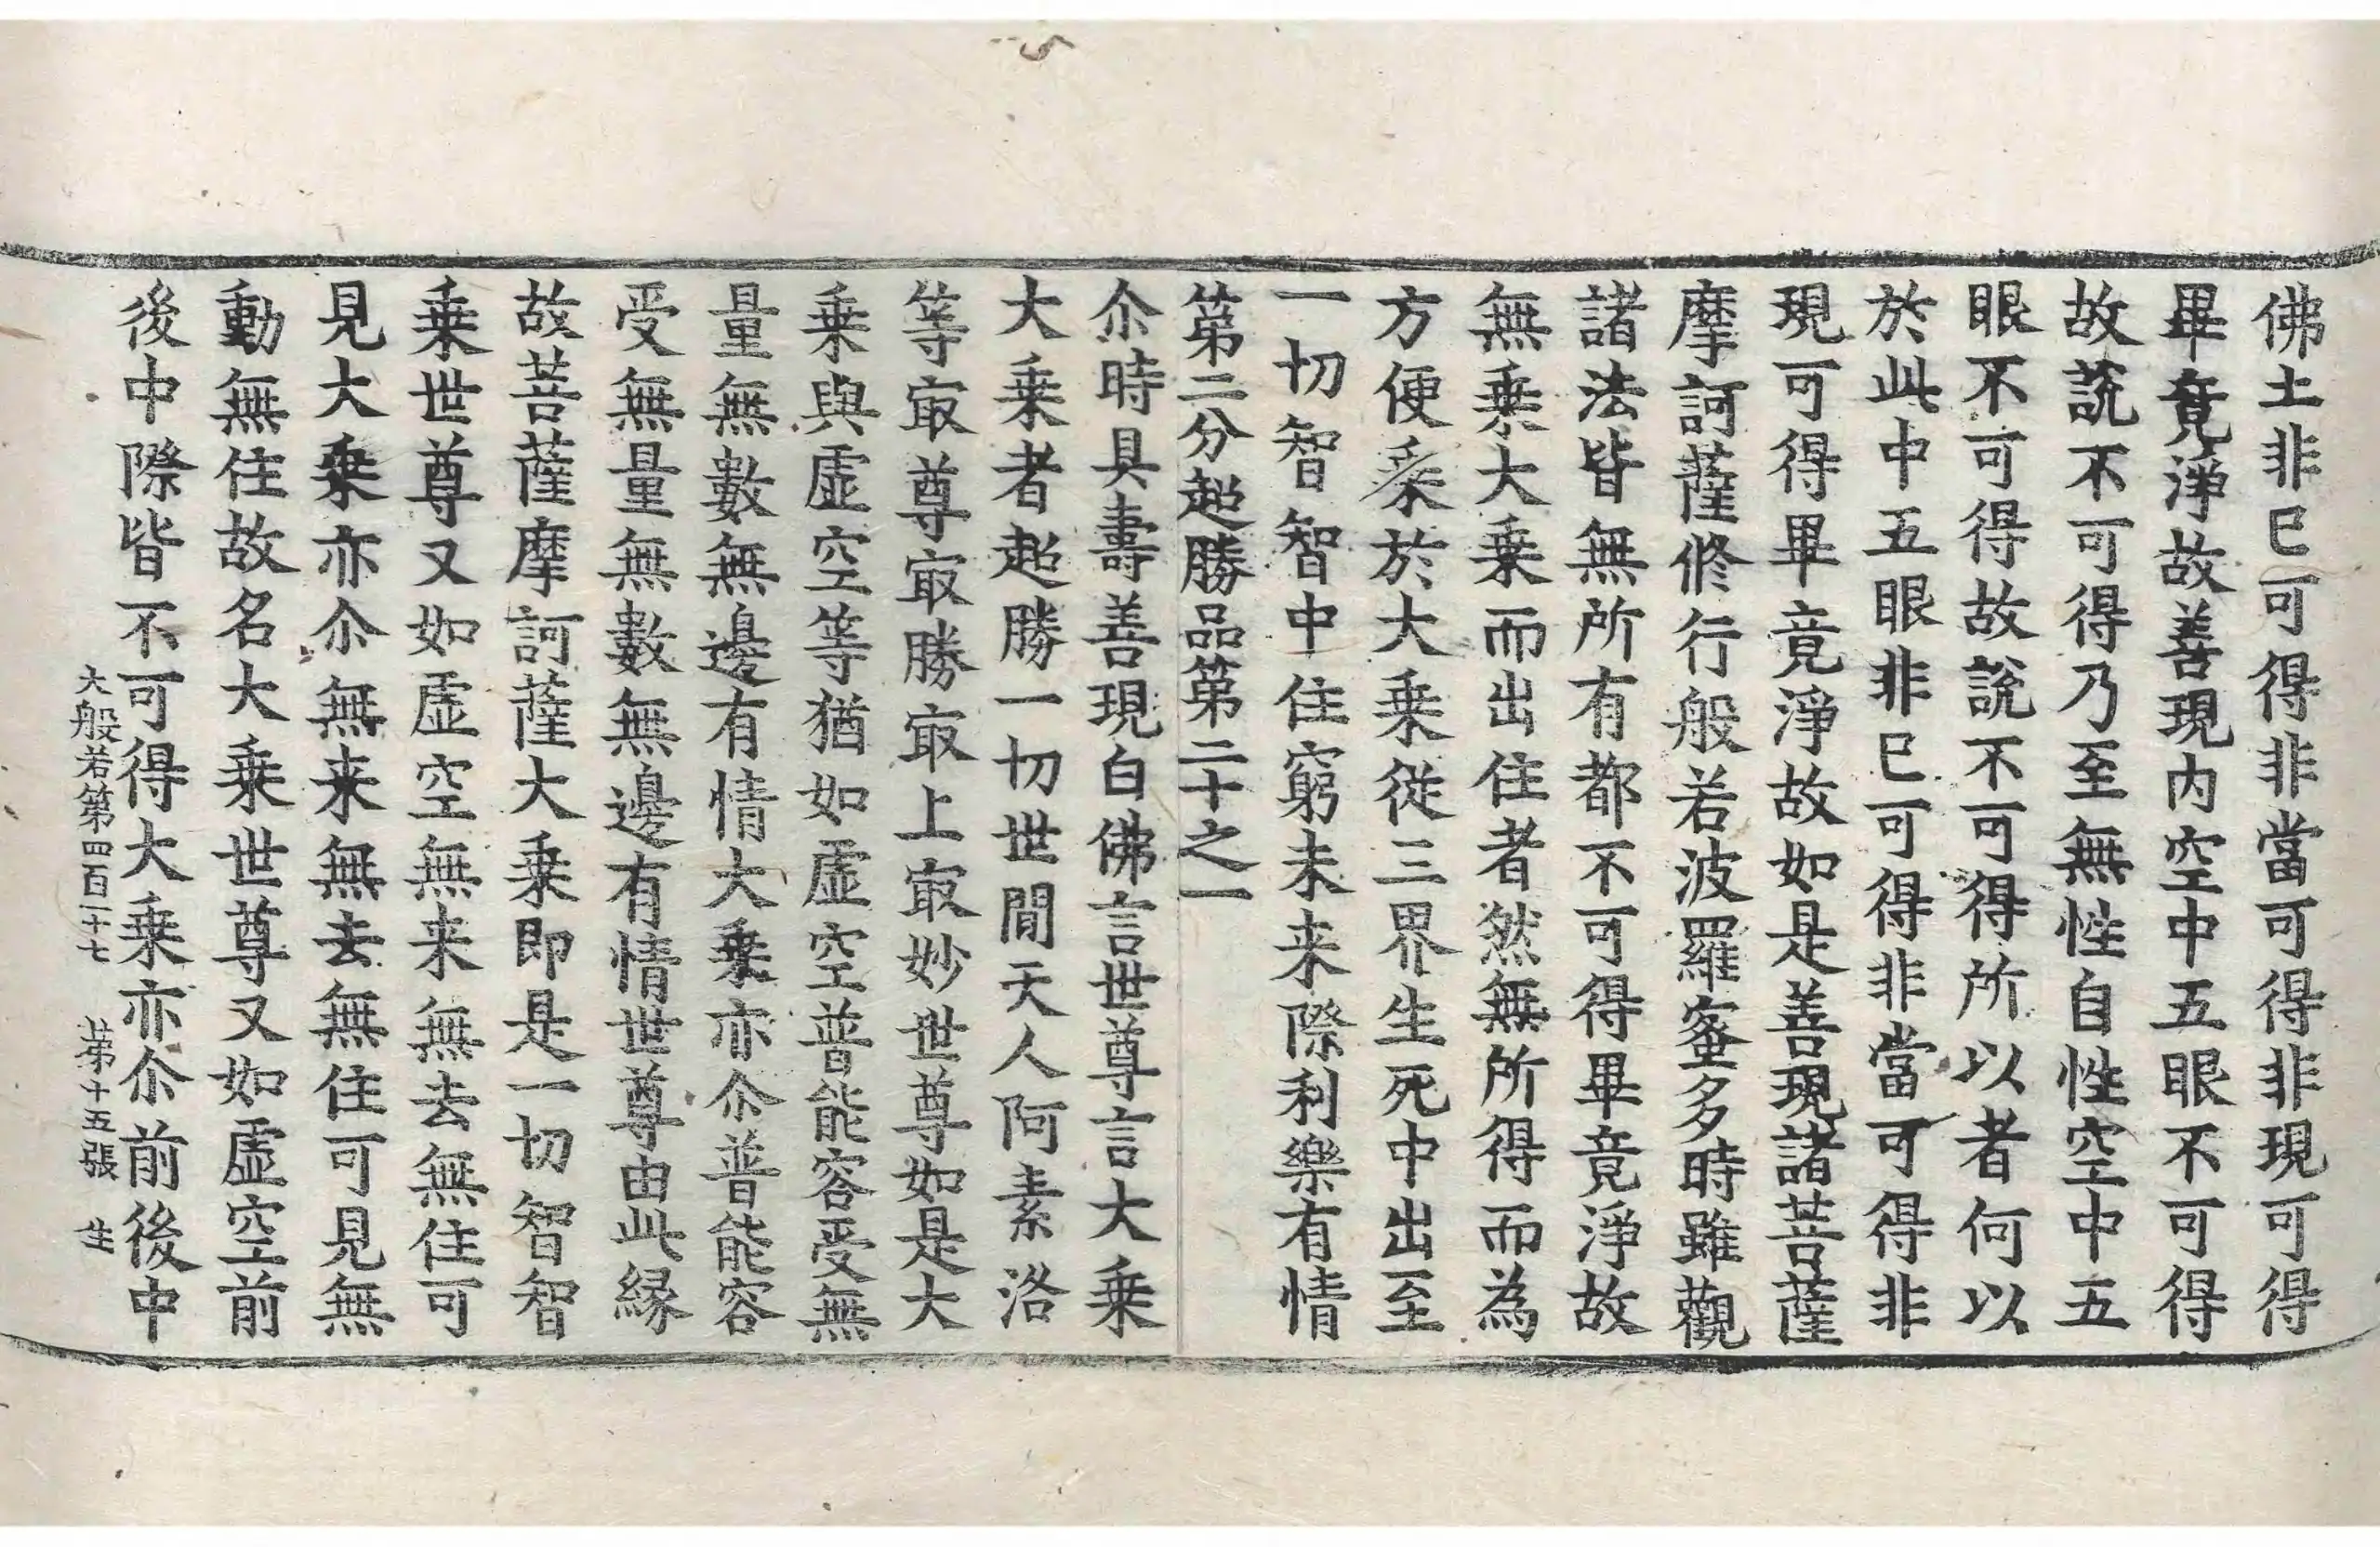 佛土非已可得非當可得非現可得
畢竟淨故善現內空中五眼不可得
故說不可得乃至無性自性空中五
眼不可得故說不可得所以者何以
於此中五眼非已可得非當可得非
現可得畢竟淨故如是善現諸菩薩
摩訶薩修行般若波羅蜜多時雖觀
諸法皆無所有都不可得畢竟淨故
無乗大乗而出住者然無所得而為
方便乗於大乗從三界生死中出至
一切智智中住窮未来際利樂有情
第二分超勝品第二十之一
尒時具壽善現白佛言世尊言大乗
大乗者超勝一切世間天人阿素洛
等寂尊寂勝寂上寂妙世尊如是大
乗與虛空等猶如虛空普能容受無
量無數無邊有情大乗亦尒普能容
受無量無數無邊有情世尊由此緣
故菩薩摩訶薩大乗即是一切智智
乗世尊又如虛空無来無去無住可
見大乗亦尒無来無去無住可見無
動無住故名大乗世尊又如虛空前
後中際皆不可得大乗亦尒前後中
大般若第四百二十七 第十五張 生